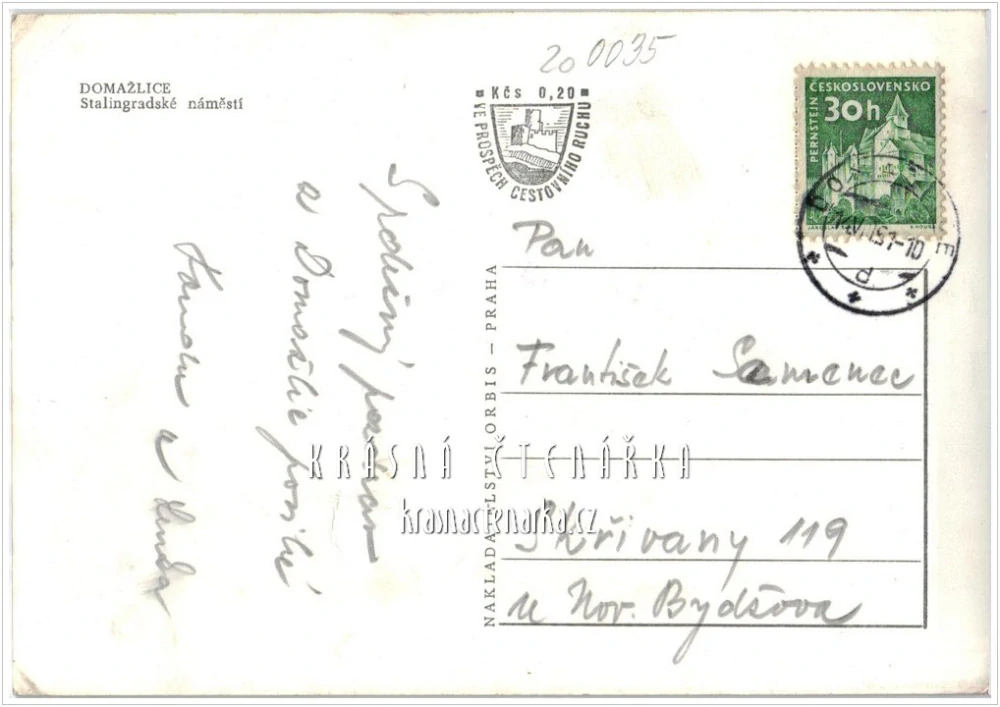 DOMAŽLICE
Stalingradské náměstí
20 0035
Kčs 0,20
VE PROSPĚCH CESTOVNÍHO RUCHU
ČESKOSLOVENSKO
30h
PERNŠTEJN
Srdečný pozdrav
z Domažlic posílá
a
NAKLADATELSTVÍ ORBIS – PRAHA
Pan
František Samenec
Skřivany 119
u Nov. Bydšova
KRÁSNÁ ČTENÁŘKA
krasnactenarka.cz